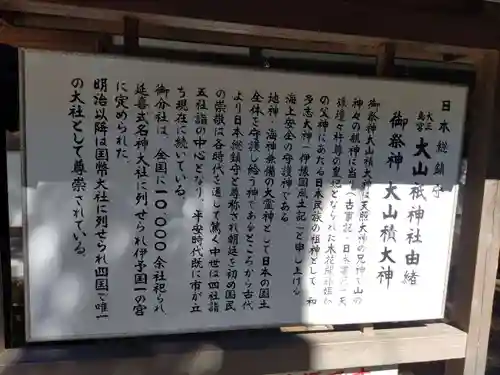 日本総鎮守
大三島宮 大山祇神社由緒
御祭神 大山積大神
御祭神大山積大神は天照大神の兄神で山の
神々の親神に当り(古事記・日本書紀)天
孫瓊々杵尊の皇妃となられた木花開耶姫命
の父神にあたる日本民族の祖神として、和
多志大神(伊豫国風土記)と申し上げる
海上安全の守護神である
地神・海神兼備の大霊神として日本の国土
全体を守護し給う神であるところから古代
より日本総鎮守と尊称され朝廷を初め国民
の崇敬は各時代を通して篤く中世は四社詣
五社詣の中心となり、平安時代既に市が立
ち現在に続いている。
御分社は、全国に一〇、〇〇〇余社祀られ
延喜式名神大社に列せられ伊予国一の宮
に定められた。
明治以降は国幣大社に列せられ四国で唯一
の大社として尊崇されている。